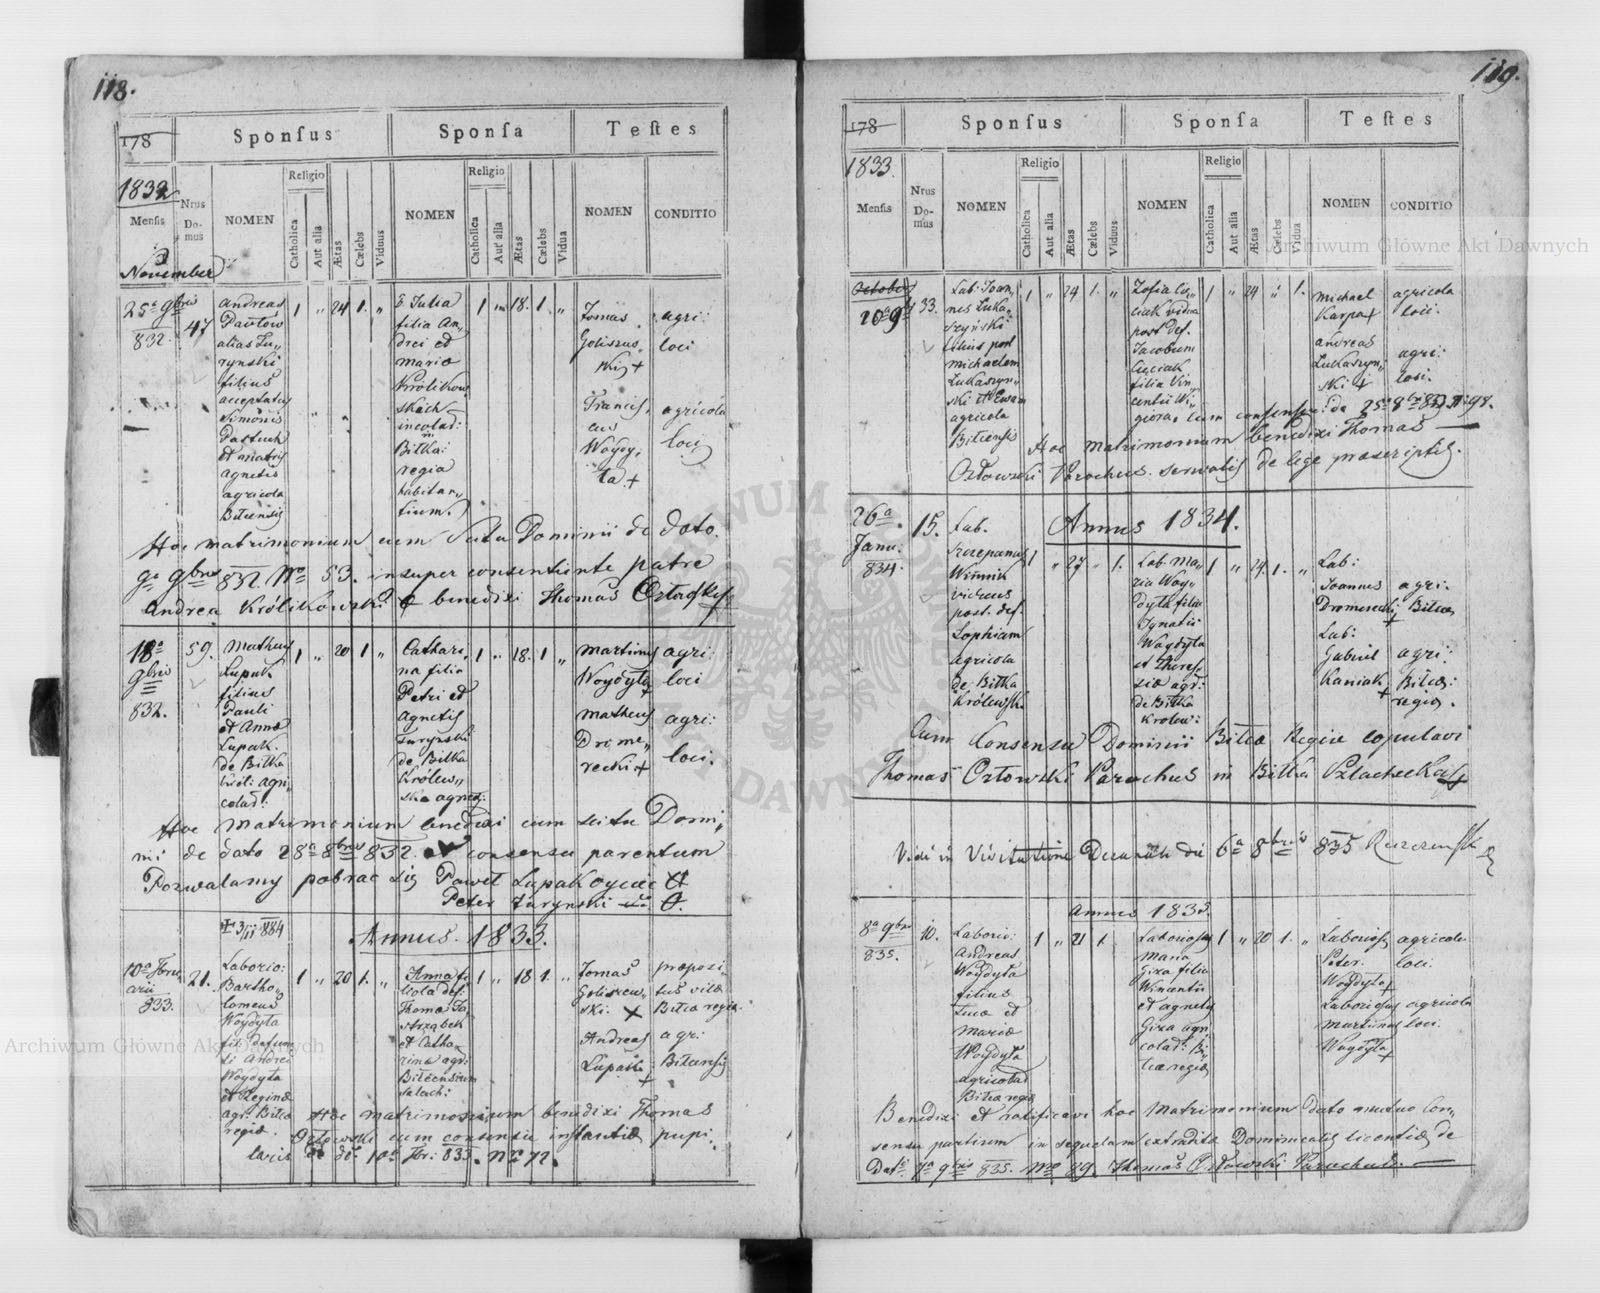 118.
178
Sponſus
Sponſa
Teſtes
1832
Menſis
Nrus
Do-
mus
NOMEN
Religio
Catholica
Aut alia
Ætas
Cælebs
Viduus
NOMEN
Religio
Catholica
Aut alia
Ætas
Cælebs
Vidua
NOMEN
CONDITIO
November
25a 9bris
832.
47
Andreas
alias Zu„
rynski
filius
Simonis
Pastuch
et matris
Agnetis
agricola
Bitcensis
1 „ 24 1. „
Julia
filia An„
drei et
Mariæ
Krolikow
incolad:
in
Bitka:
regia
habitan„
tium.
1 „ 18. 1. „
Tomas
Goliszus„
ski +
agri:
loci
Francis„
cus
Woydy„
ta +
agricola
loci
Hoc matrimonium cum Scitu Dominii de dato
9a 9bris 832 No 53. insuper consentiente patre
Andrea Królikowski benedixi Thomas Orłowski
18a
9bris
832.
59.
Matheus
Łupak.
filius
Pauli
et Annæ
Łupak.
de Bitka
król: agri„
colad:
1 „ 20 1 „
Cathari„
na filia
Petri et
Agnetis
Zurynski
de Bitka
Królew„
ska
1 „ 18. 1 „
Martinus
Woydyta
+
agri:
loci
Matheus
Drome„
recki +
agri:
loci.
Hoc Matrimonium benedixi cum scitu Domi„
nii de dato 28a 8bris 832. consensu parentum
Pozwalamy pobrac się Paweł Łupak oyciec
Peter Żurynski
3/11 884
Annus. 1833.
10a Febru
arii
833.
21.
Laborio:
Bartho„
lomeus
Woydyta
fil: defunc
ti Andrei
Woydyta
et Reginæ
agr: Bitcæ
regiæ.
1 „ 20 1. „
Anna fi
liola def:
Thomæ Ja
strząbek
et Catha„
rinæ agri
Bitcensium
1 „ 18 1. „
Tomas
Goliszew„
ski. X
præposi„
tus villæ
Bitca regia
Andreas
Łupak
+
agr:
Bitcensis
Hoc matrimonium benedixi Thomas
Orłowski cum consensu instantiæ pupi„
laris de do: 10a Fbr: 833. Nro 72.
119.
178
Sponſus
Sponſa
Teſtes
1833.
Menſis
Nrus
Do-
mus
NOMEN
Religio
Catholica
Aut alia
Ætas
Cælebs
Viduus
NOMEN
Religio
Catholica
Aut alia
Ætas
Cælebs
Vidua
NOMEN
CONDITIO
October
20a 9b
33.
Lab: Joan„
nes Łuka„
szyński
filius post
Michaelem
Łukaszyn„
ski et Evam
agricola
Bitcensis
1 „ 24 1. „
Zofia Cu„
ciak vidua
post def.
Jacobum
Cuciak
filia Vin„
centii Wi„
1 „ 24 „ 1.
Michael
Karpa +
agricola
loci.
Andreas
Łukaszyn„
ski +
agri:
loci.
cum consensu: do 25a 8bris 833 No 98.
Hoc matrimonium benedixi Thomas
Orłowski Parochus servatis de lege præscriptis.
26a
Janu:
834.
15.
Lab.
Szczepanus
Winnik
viduus
post. def.
Zophiam
agricola
de Bitka
Królewsk.
Annus 1834.
1 „ 27 „ 1.
Lab. Ma„
ria Woy„
dyta filia
Ignatii
Woydyta
et There„
siæ agr:
de Bitka
królew:
1 „ 24. 1. „
Lab:
Joannes
Dromerecki
+
agri:
Bitcæ
Lab:
Gabriel
Kaniak
+
agri:
Bitcæ:
regiæ.
Cum Consensu Dominii Bitcæ Regiæ copulavi
Thomas Orłowski Parochus in Bitka Szlachecka
Vidi in Visitatione Decanali die 6a 8bris 835
Annus 1835.
8a 9bris
835.
10.
Laborio:
Andreas
Woydyta
filius
Lucæ et
Mariæ
Woydyta
agricolad
Bitca regiæ
1 „ 21 1.
Laboriosa
Maria
Giza filia
Wincentii
et Agnetis
Giza agri„
colad: Bi„
tcæ regiæ
1 „ 20 1. „
Laboriosus
Peter.
Woydyta
+
agricola
loci.
Laboriosus
Martinus
Woydyta
+
agricola
loci.
Benedixi et ratificavi hoc Matrimonium dato mutuo Con„
sensu partium in sequelam extraditæ Dominicalis licentiæ de
Dato 7a 9bris 835. Nro 89. Thomas Orłowski Parochus.
Archiwum Główne Akt Dawnych
Archiwum Główne Akt Dawnych